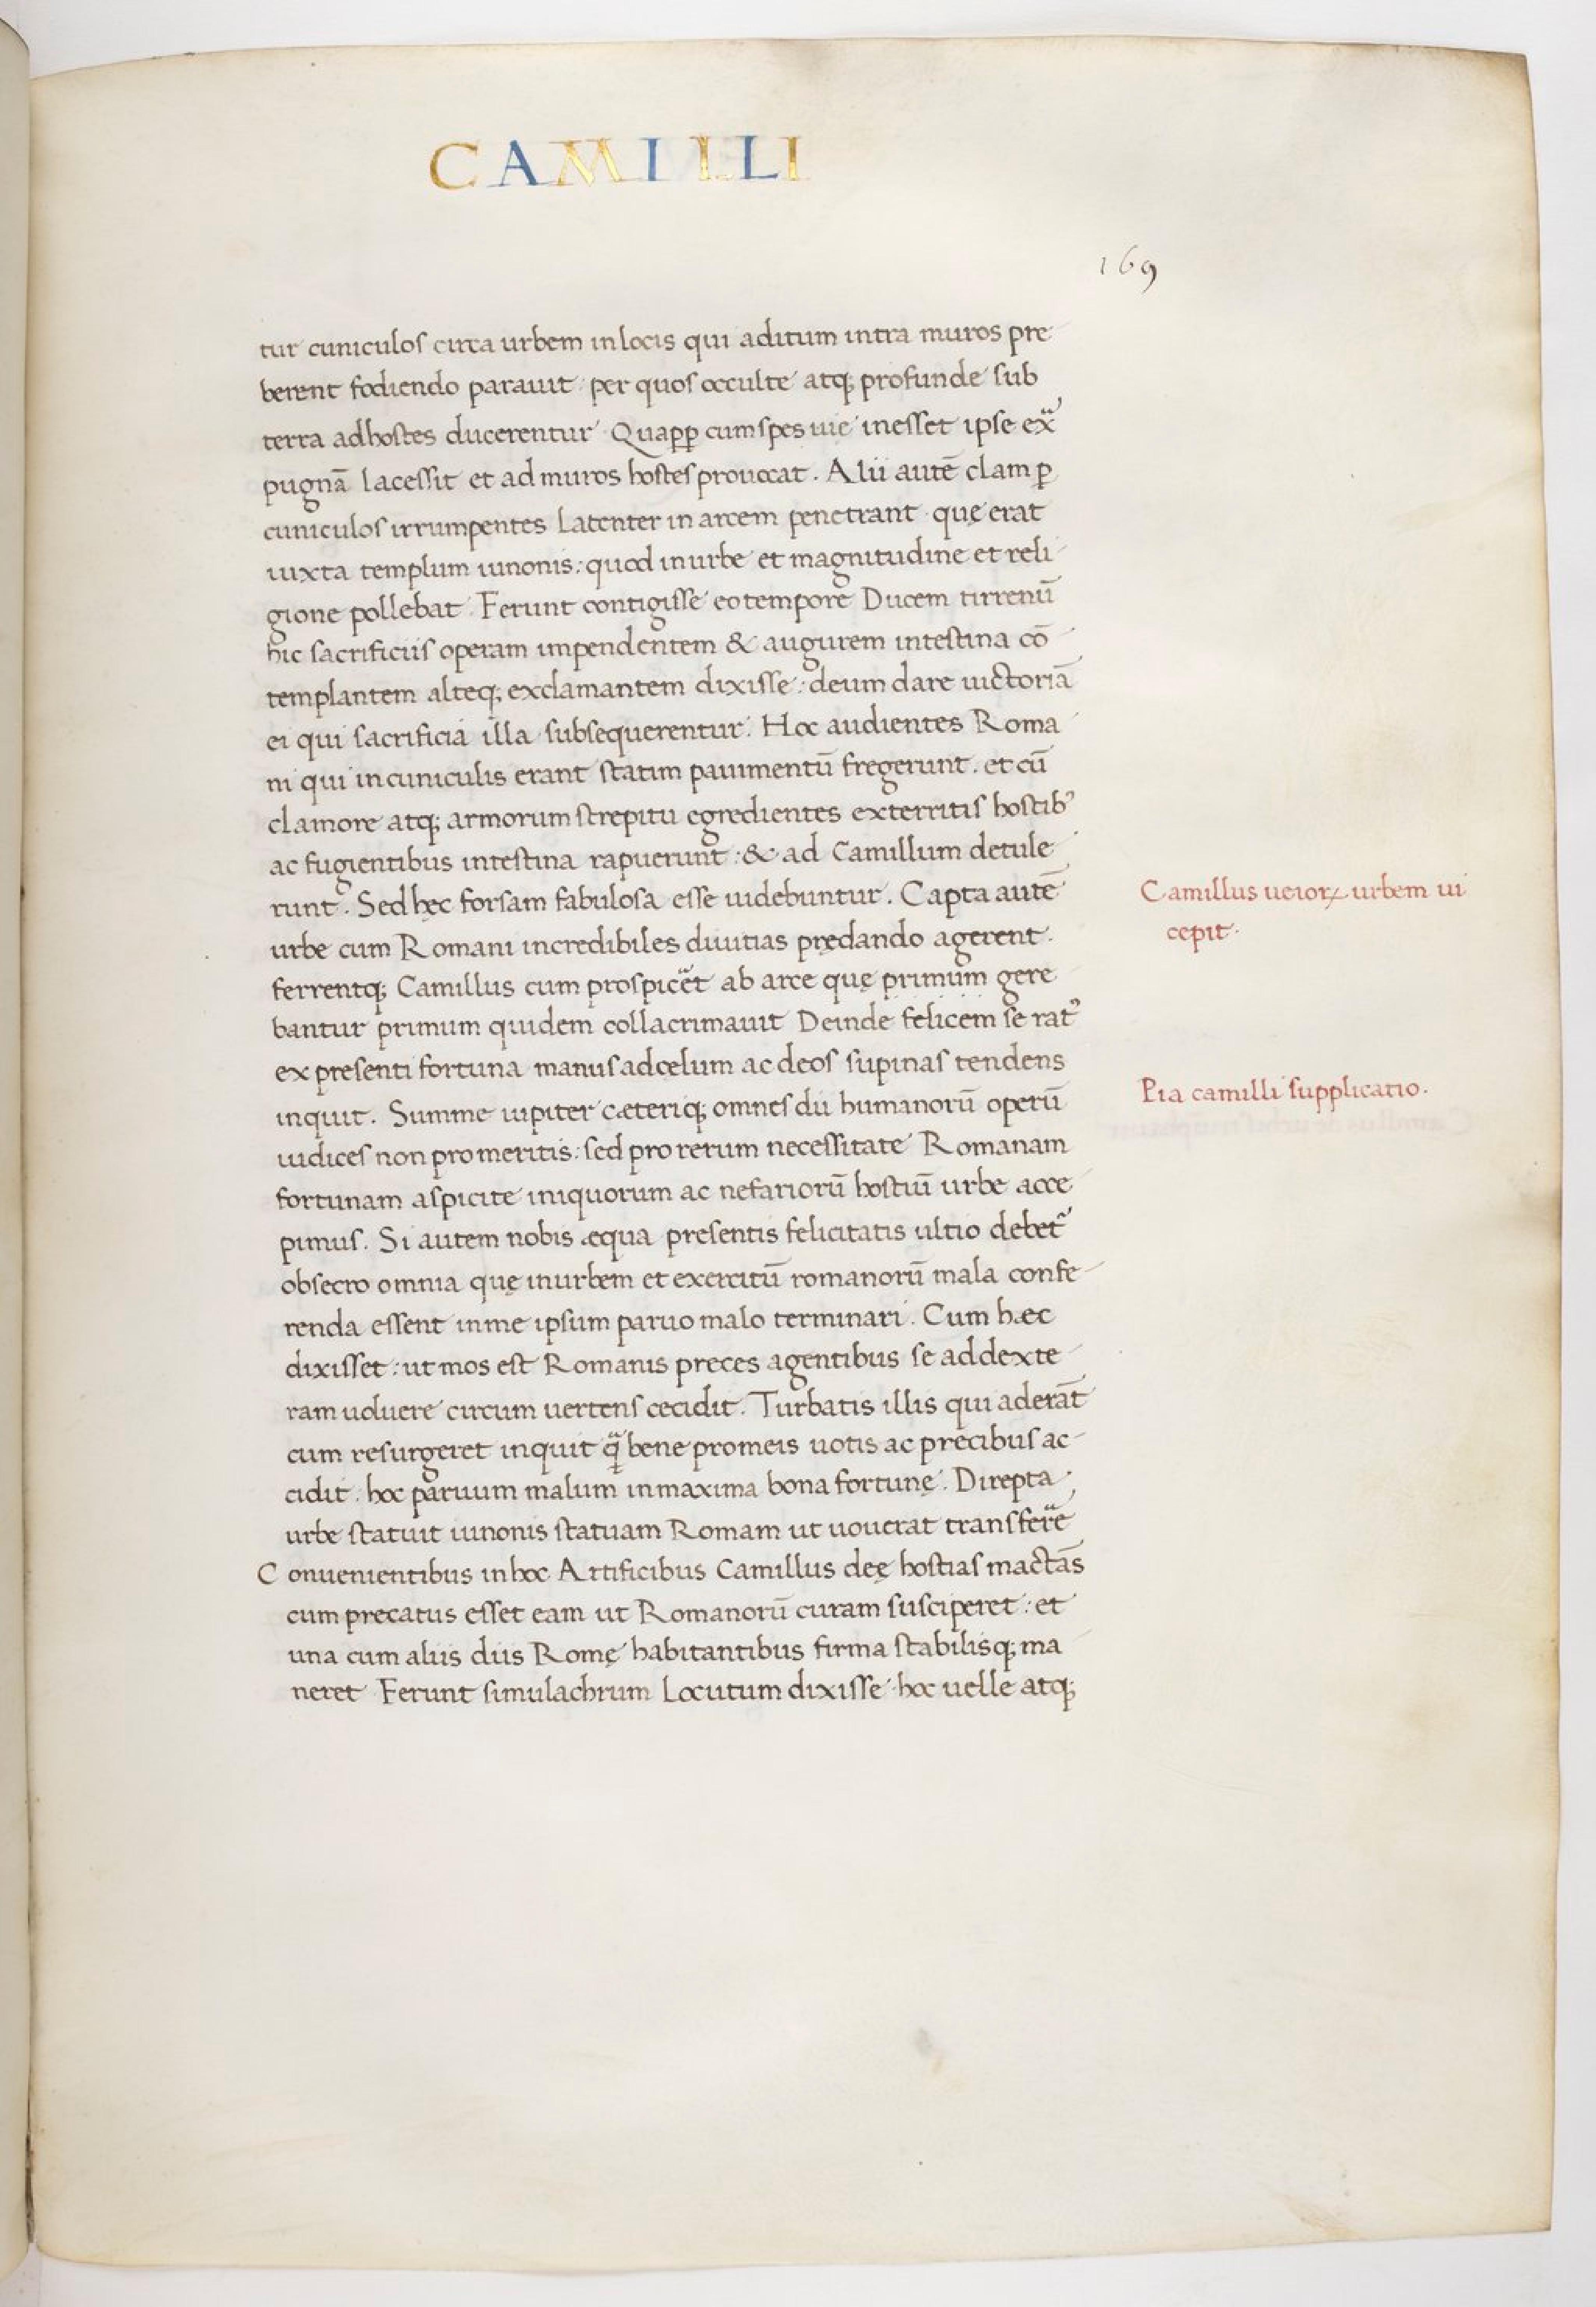 CAMILLI
169
tur cuniculos circa urbem in locis qui aditum intra muros pre
berent fodiendo parauit: per quos occulte atq; profunde sub
terra ad hostes ducerentur. Quaꝓꝑ cum spes uię inesset ipse exᵃ
pugnā lacessit et ad muros hostes prouocat. Alii autē clam ꝑ
cuniculos irrumpentes latenter in arcem penetrant. quę erat
iuxta templum iunonis: quod in urbe et magnitudine et reli
gione pollebat. Ferunt contigisse eo tempore Ducem tirrenū
hic sacrificiis operam impendentem & augurem intestina cō
templantem alteq; exclamantem dixisse: deum dare uictoriā
ei qui sacrificia illa subsequerentur. Hoc audientes Roma
ni qui in cuniculis erant statim pauimentū fregerunt. et cū
clamore atq; armorum strepitu egredientes exterritis hostibꝰ
ac fugientibus intestina rapuerunt: & ad Camillum detule
runt. Sed hęc forsam fabulosa esse uidebuntur. Capta autē
urbe cum Romani incredibiles diuitias prędando agerent.
ferrentq; Camillus cum prospicet ab arce quę primum gere
bantur primum quidem collacrimauit Deinde felicem se ratꝰ
ex presenti fortuna manus ad cęlum ac deos supinas tendens
inquit. Summe iupiter cæteriq; omnes dii humanorū operū
iudices non pro meritis: sed pro rerum necessitate Romanam
fortunam aspicite iniquorum ac nefariorū hostiū urbe acce
pimus. Si autem nobis æqua presentis felicitatis ultio debet᷑
obsecro omnia quę in urbem et exercitū romanorū mala confe
renda essent in me ipsum paruo malo terminari. Cum hæc
dixisset: ut mos est Romanis preces agentibus se ad dexte
ram uoluere circum uertens cecidit. Turbatis illis qui aderāt
cum resurgeret inquit qᵃ bene pro meis uotis ac precibus ac
cidit. hoc paruum malum in maxima bona fortunę. Direpta
urbe statuit iunonis statuam Romam ut uouerat transferre
Conuenientibus in hoc Artificibus Camillus deę hostias mactās
cum precatus esset eam ut Romanorū curam susciperet: et
una cum aliis diis Romę habitantibus firma stabilisq; ma
neret Ferunt simulachrum locutum dixisse hoc uelle atq;
Camillus ueioꝝ urbem ui
cepit.
Pia camilli supplicatio.